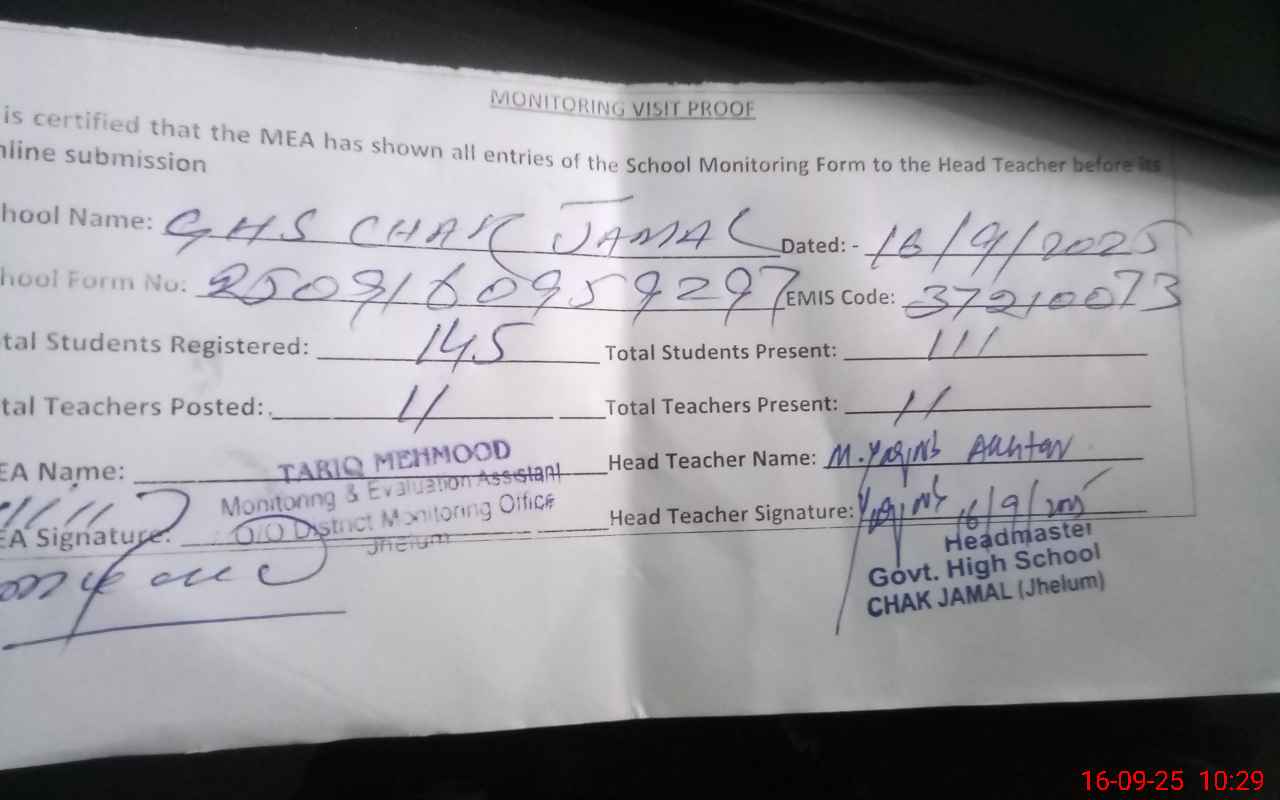 MONITORING VISIT PROOF
is certified that the MEA has shown all entries of the School Monitoring Form to the Head Teacher before its
nline submission
hool Name: GHS CHAK JAMAL Dated: - 16/9/2025
hool Form No: 2509160959297 EMIS Code: 37210073
tal Students Registered: 145 Total Students Present: 111
tal Teachers Posted: 11 Total Teachers Present: 11
EA Name: TARIQ MEHMOOD Head Teacher Name: M. Akhtar
Monitoring & Evaluation Assistant
EA Signature: O/O District Monitoring Office Head Teacher Signature: 16/9/2025
Jhelum
Headmaster
Govt. High School
CHAK JAMAL (Jhelum)
16-09-25 10:29